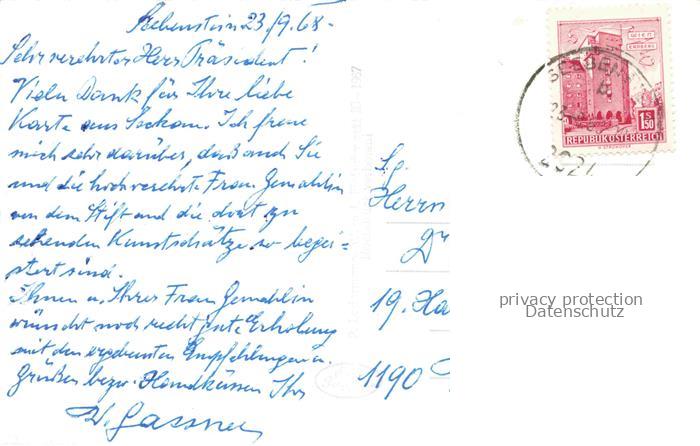 Seebenstein 23./9.68.
Sehr verehrter Herr Präsident!
Vielen Dank für Ihre liebe
Karte aus Seckau. Ich freue
mich sehr darüber, daß auch Sie
und die hochverehrte Frau Gemahlin
von dem Stift und die dort zu
sehenden Kunstschätze so begei=
stert sind.
Ihnen u. Ihrer Frau Gemahlin
wünscht noch recht gute Erholung
mit den ergebensten Empfehlungen u.
Grüßen bezw. Handküssen Ihr
W. Gassner
S.g.
Herrn
Dr
19. Ha
1190
WIEN
ERDBERG
S
1.50
REPUBLIK ÖSTERREICH
SEEBEN
privacy protection
Datenschutz